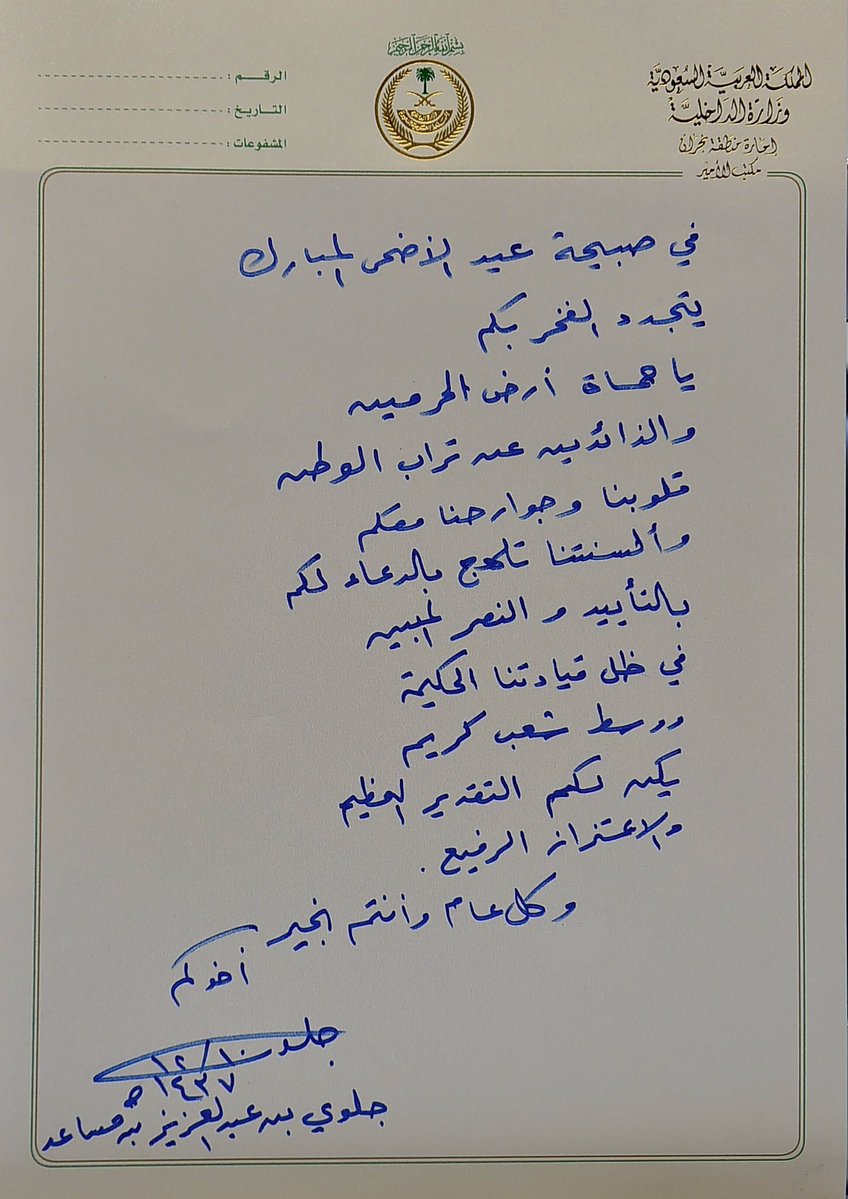 بسم الله الرحمن الرحيم
المملكة العربية السعودية
وزارة الداخلية
إمارة منطقة نجران
مكتب الأمير
الرقم :
التاريخ :
المشفوعات :
في صبيحة عيد الأضحى المبارك
يتجدد الفخر بكم
يا حماة أرض الحرمين
والذائدين عن تراب الوطن
قلوبنا وجوارحنا معكم
وألسنتنا تلهج بالدعاء لكم
بالتأييد و النصر المبين
في ظل قيادتنا الحكيمة
ووسط شعب كريم
يكن لكم التقدير العظيم
والاعتزاز الرفيع .
وكل عام وأنتم بخير
أخوكم
١٢/١٠
١٤٣٧هـ
جلوي بن عبدالعزيز بن مساعد